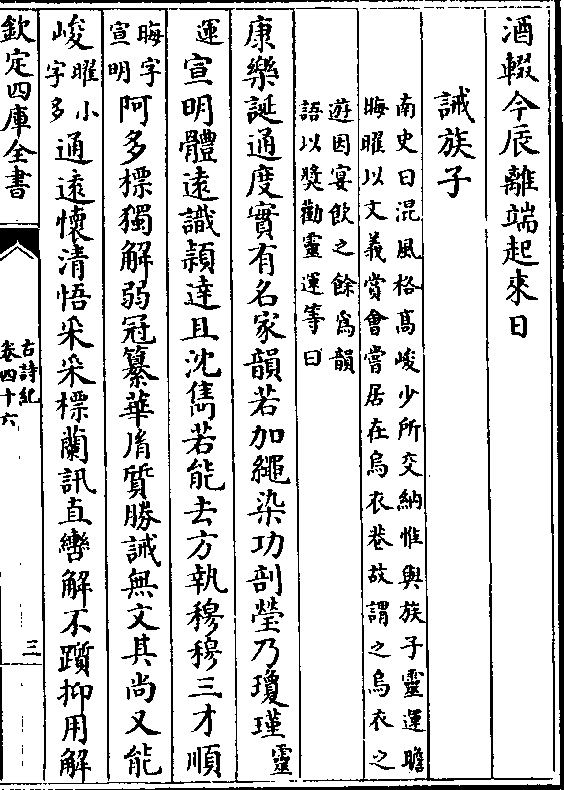 酒輟今辰離端起來日
誡族子
南史曰混風格髙峻少所交納惟與族子靈運瞻
晦曜以文義賞會嘗居在烏衣巷故謂之烏衣之
遊因宴飲之餘為韻
語以奬勸靈運等曰
康樂誕通度實有名家韻若加繩染功剖瑩乃瓊瑾靈
運宣明體遠識頴達且沈雋若能去方執穆穆三才順
晦字宣明阿多標獨解弱冠纂華𦙍質勝誡無文其尚又能
峻曜小字多通逺懷清悟采采標蘭訊直轡觧不躓抑用解
欽定四庫全書
古詩紀
卷四十六
三